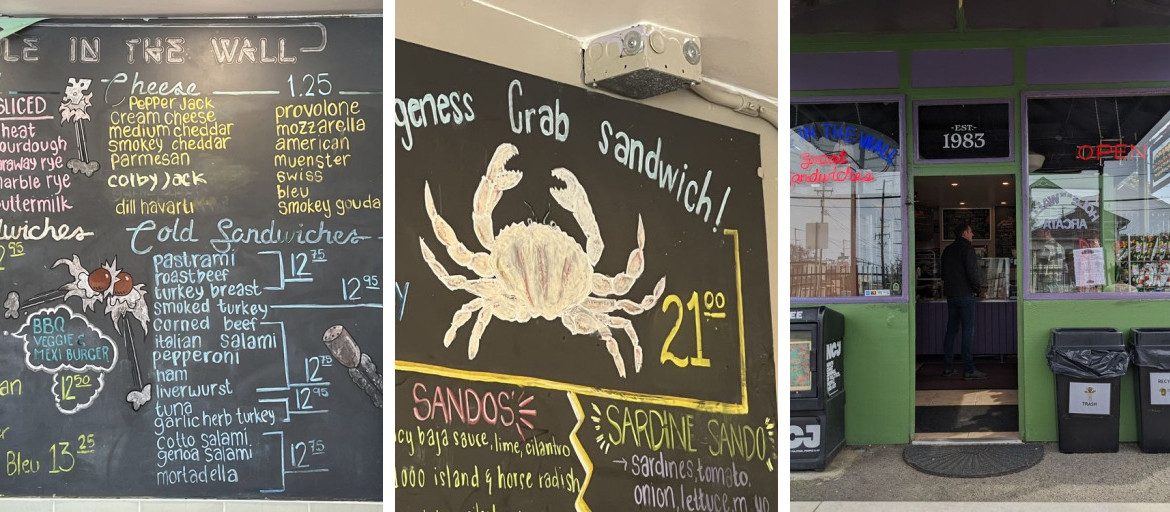 LE IN THE WALL
Cheese 1.25
SLICED
Pepper Jack
cream cheese
medium cheddar
smokey cheddar
parmesan
colby Jack
dill havarti
provolone
mozzarella
american
muenster
swiss
bleu
smokey gouda
heat
ourdough
araway rye
marble rye
buttermilk
dwiches
Cold Sandwiches
pastrami
roastbeef
turkey breast
12 75
smoked turkey
12 95
corned beef
italian salami
pepperoni
ham
12 75
liverwurst
tuna
12 95
garlic herb turkey
cotto salami
genoa salami
mortadella
12 75
BBQ
VEGGIE &
MEXI BURGER
12 50
an
Bleu 13 25
geness Crab sandwich!
21 00
SANDOS
cy baja sauce, lime, cilantro
1000 island & horse radish
SARDINE SANDO
→ sardines, tomato,
onion, lettuce, m yo
IN THE WALL
great
sandwiches
-EST.-
1983
OPEN
ARCATA
NCJ
CJ
TRASH